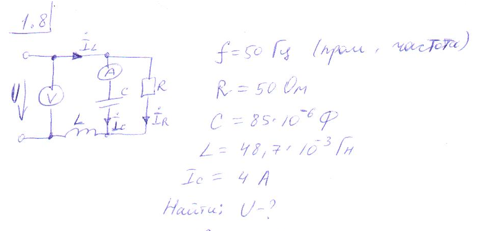 1,8
İ_L
f = 50 Гц (пром. частота)
A
V
U
C
R
R = 50 Ом
L
İ_C
İ_R
C = 85·10⁻⁶ Ф
L = 48,7·10⁻³ Гн
I_C = 4 А
Найти: U-?